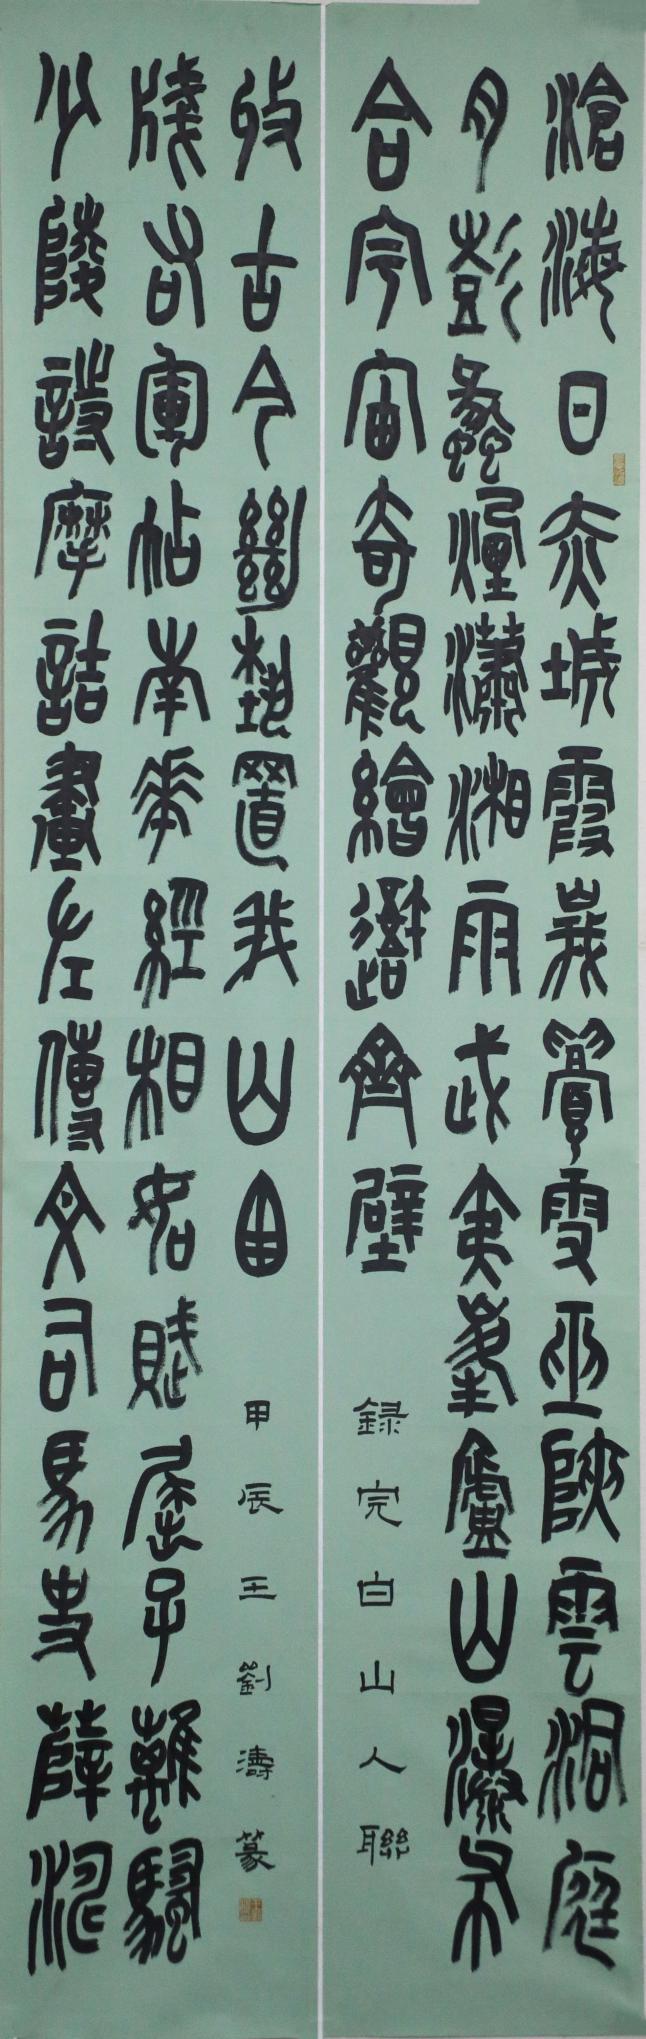 滄海日赤城霞峨嵋雪巫峽雲洞庭
月彭蠡煙瀟湘雨武夷峯廬山瀑布
合宇宙奇觀繪吾齋壁
錄完白山人聯
少陵詩摩詰畫左傳文司馬史薛濤
牋右軍帖南華經相如賦屈子離騷
收古今絕藝置我山窗
甲辰王劉濤篆